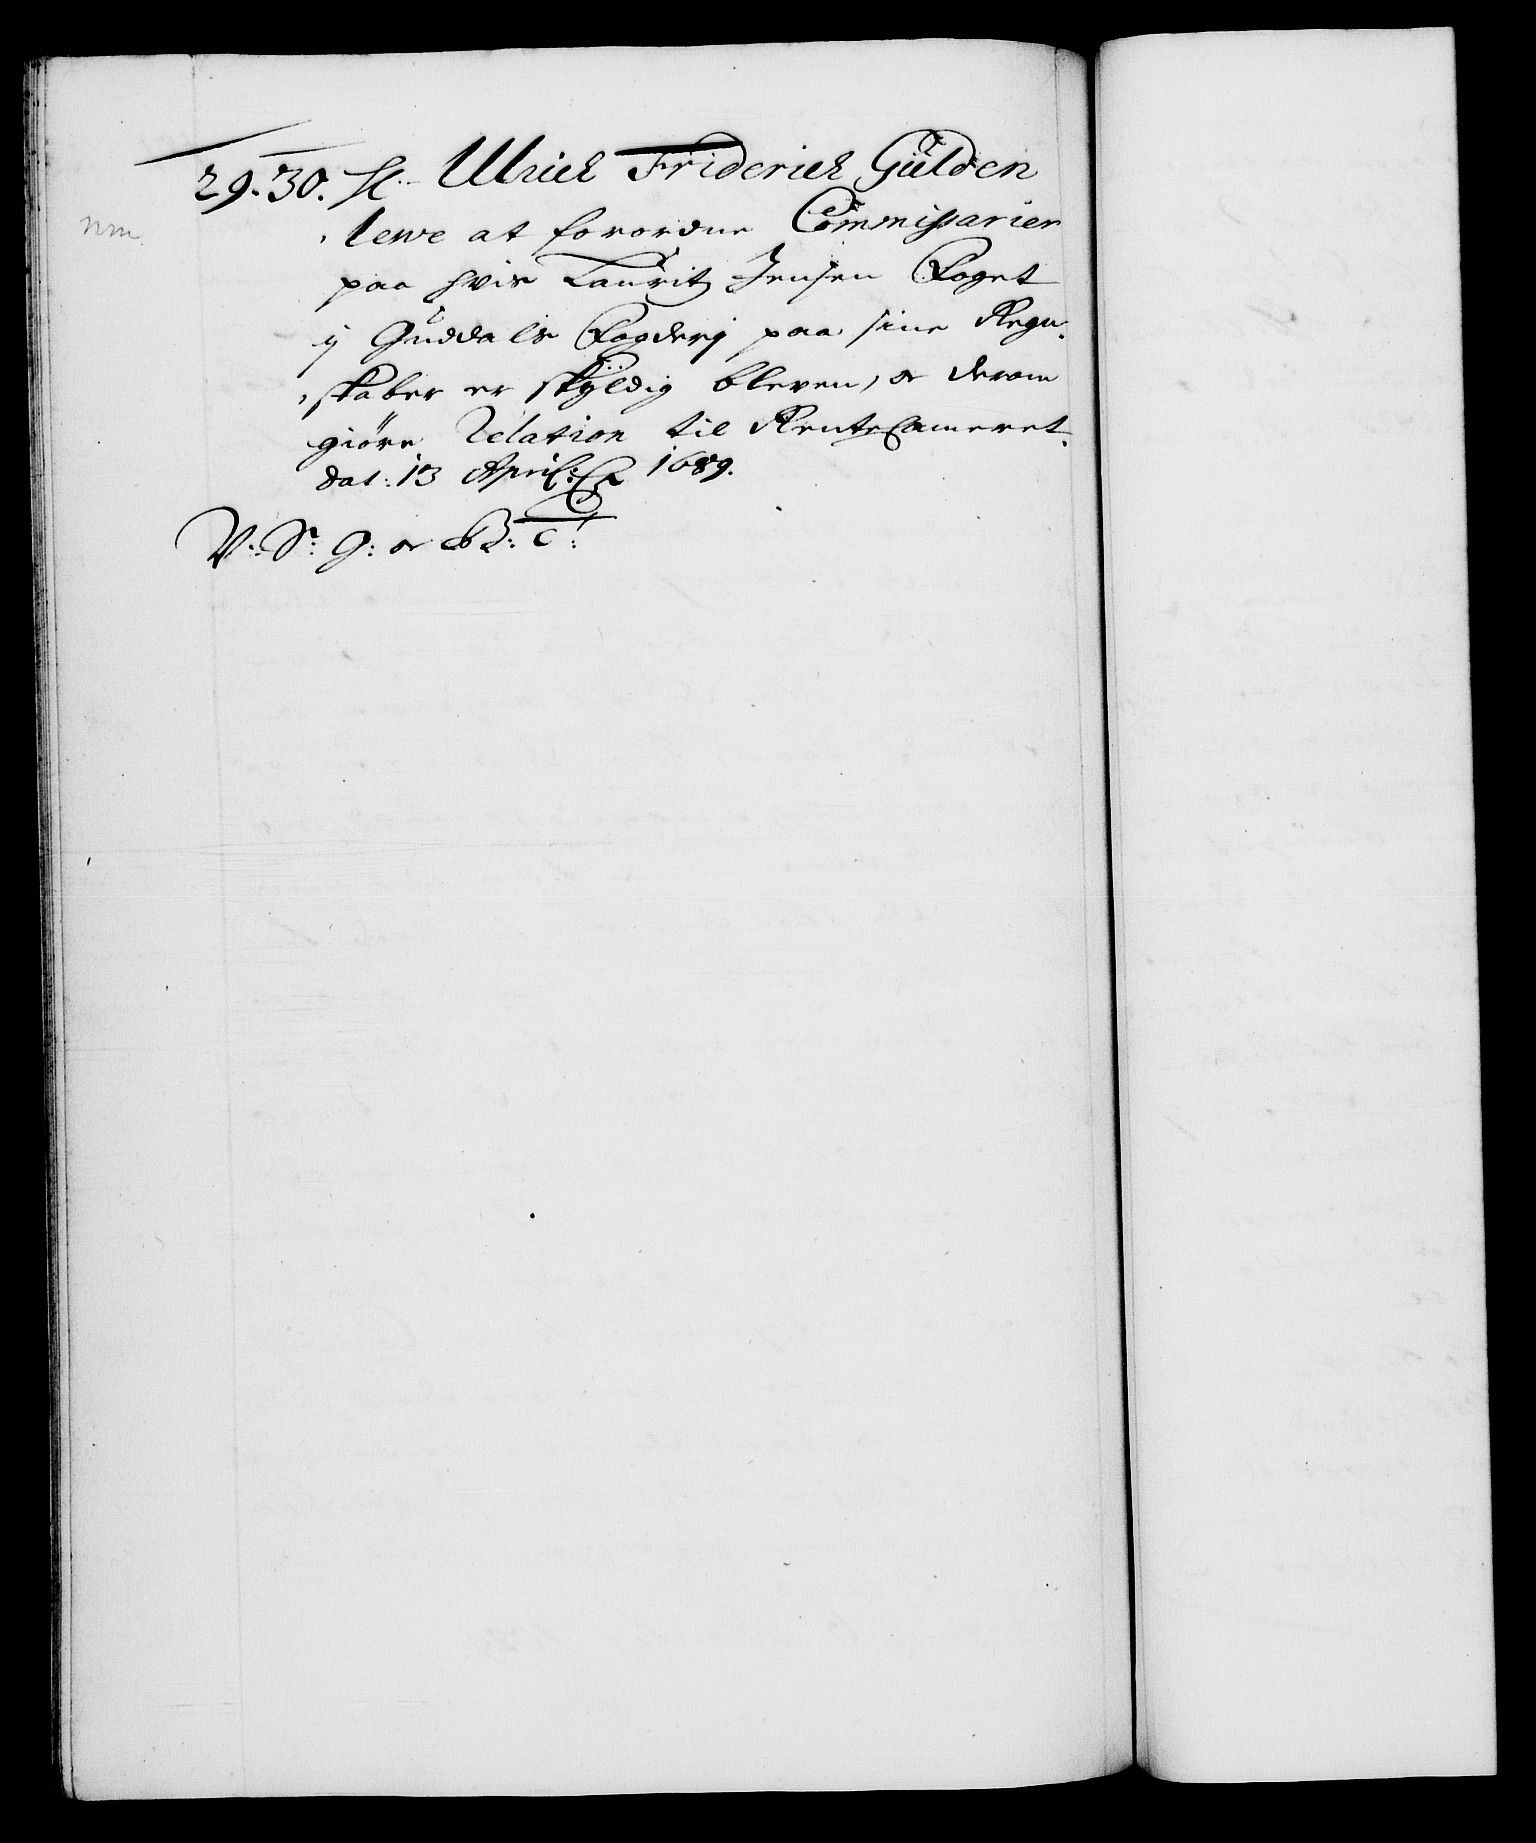 29. 30. H: Ulrich Friderich Gülden
lewe at forordne Commissarier
paa hvis Lauritz Jensen Foget
ij Guddals Fogderj paa sine Regn-
skaber er skÿldig bleven, oc derom
giöre Relation til RenteCammeret.
dat: 13 April: 1689.
V: Sr: G: oc B: C:
nm.